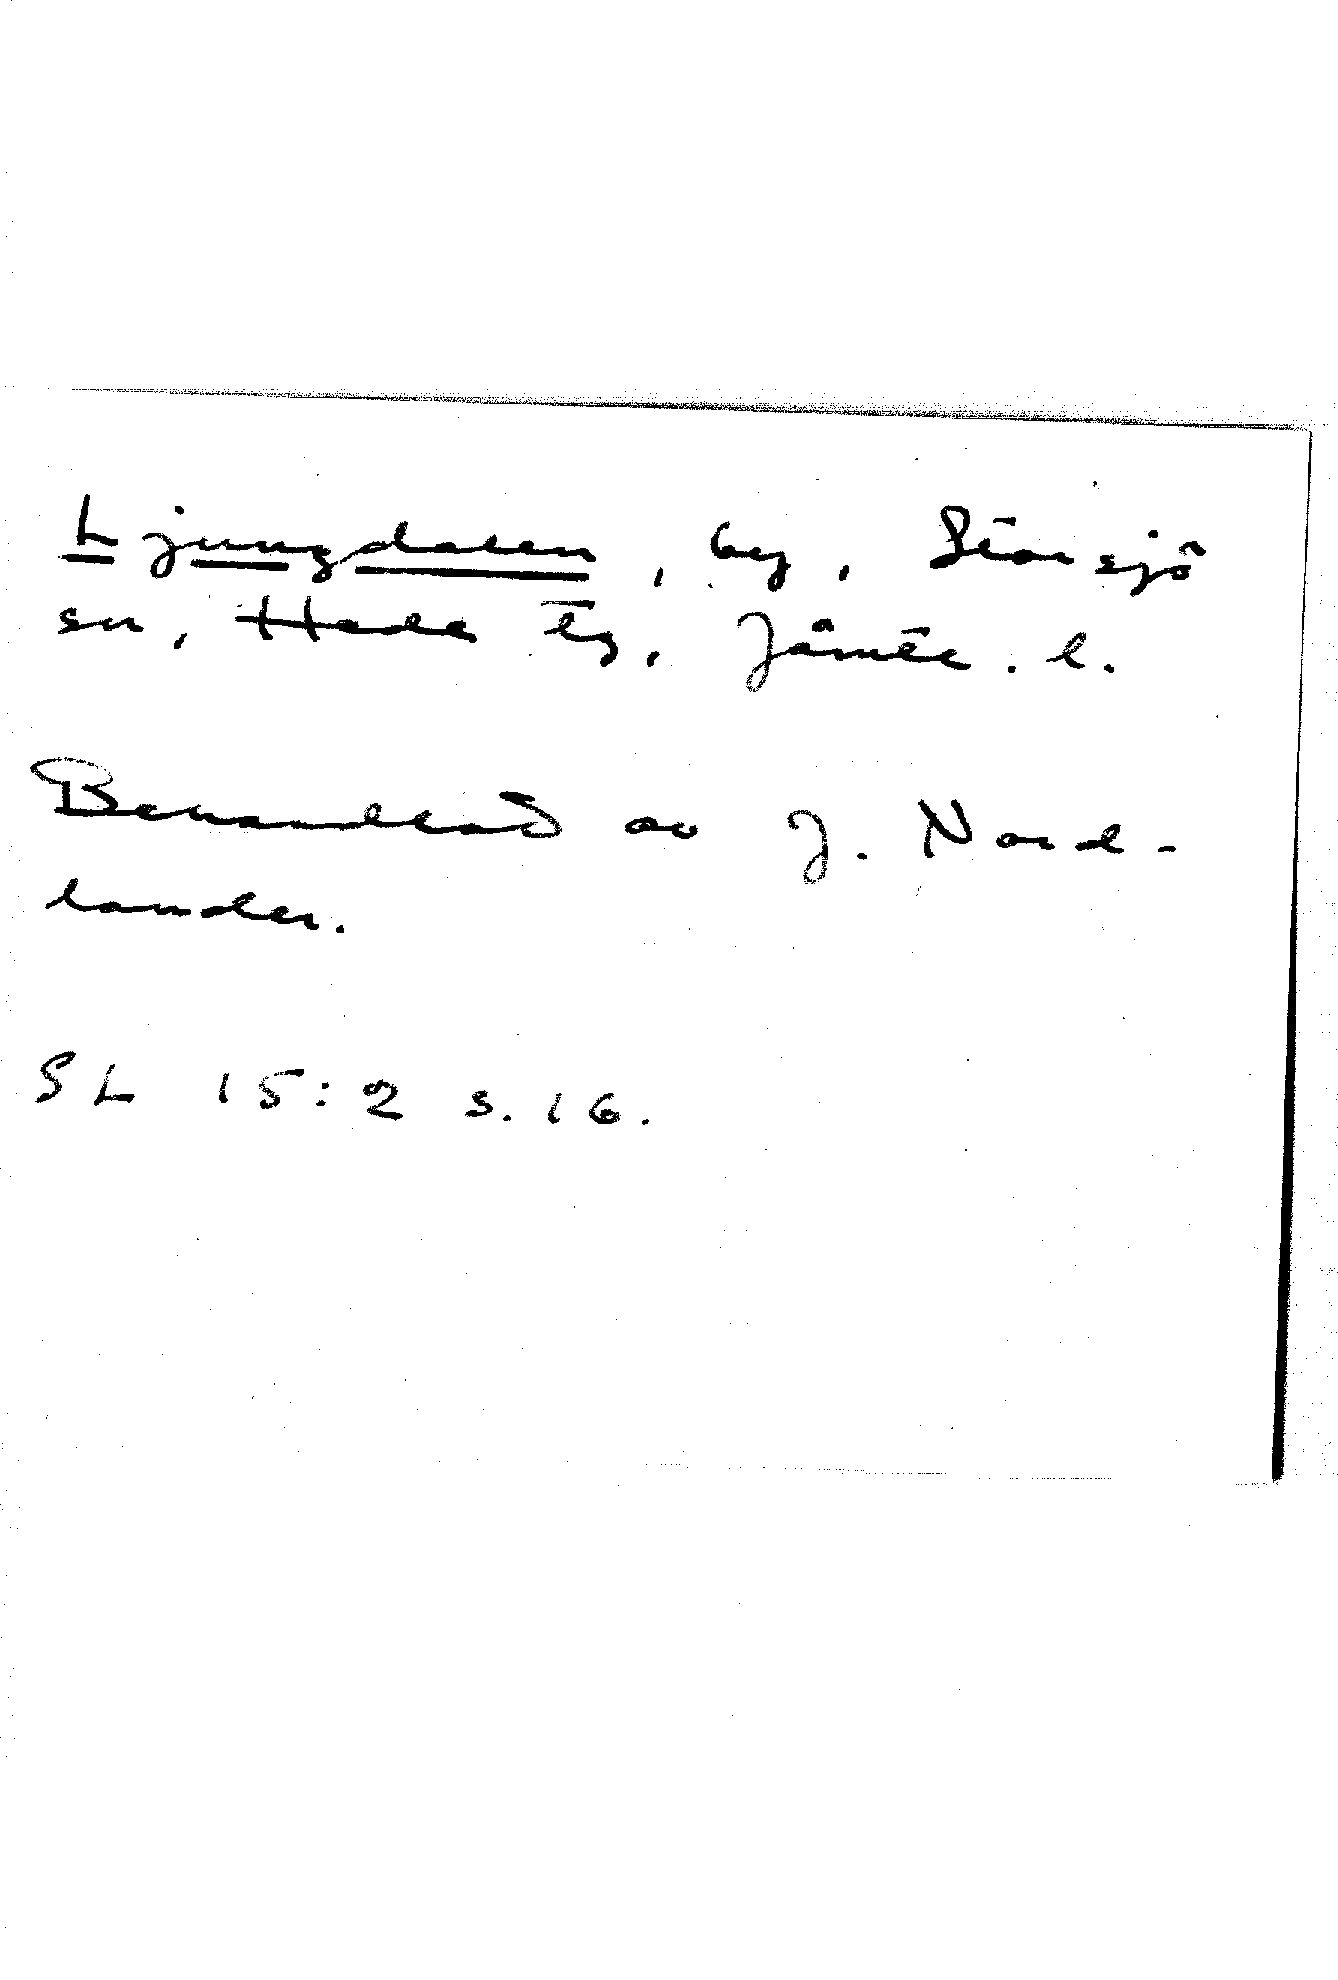 Ljungdalen, by, Storsjö
sn, Hede tg, Jämtl. l.
Behandlad av J. Nord-
lander.
SL 15:2 s. 16.